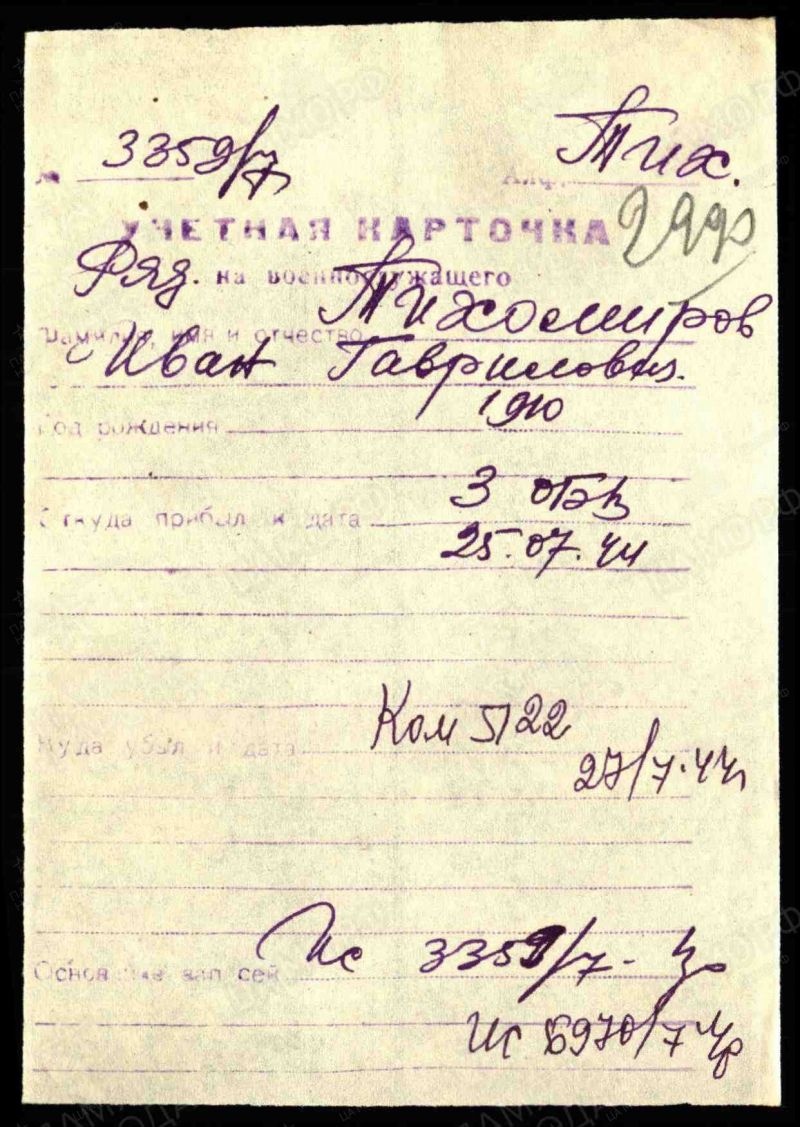 № 3359/7 Тих.
Алф.
УЧЕТНАЯ КАРТОЧКА
Ряд. на военнослужащего
Тихомиров
Фамилия, имя и отчество
Иван Гаврилович
1910
Год рождения
3 отбЭВ
Откуда прибыл и дата
25.07.44
Ком 5122
Куда убыл и дата
27/7.44
Ис 3359/7
Основание записей
Ис 6970/7